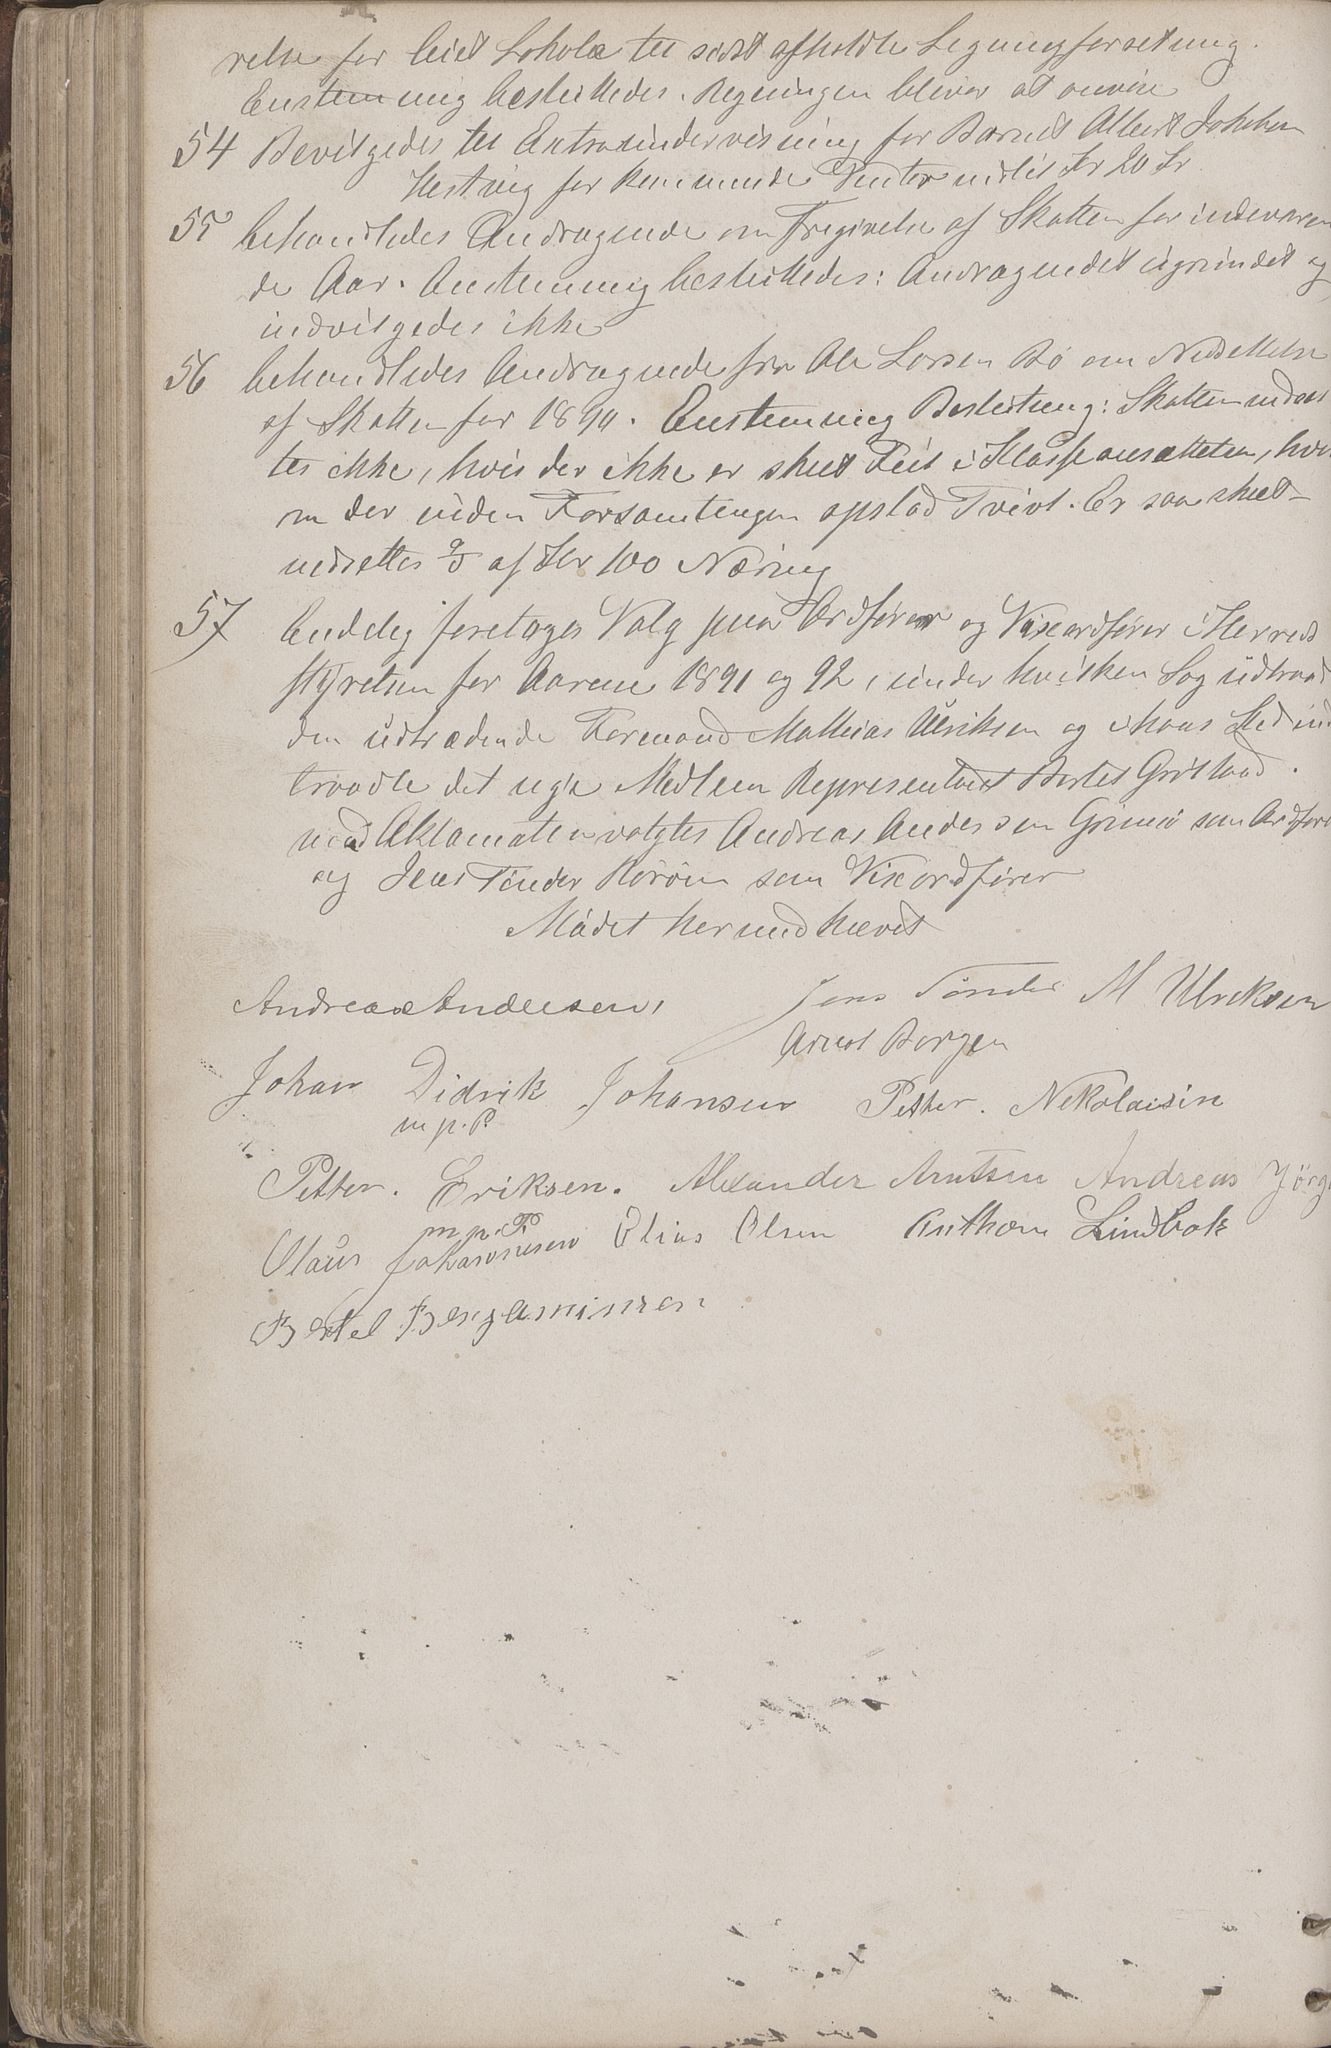 relse for leiet Lokale til sidst afholdte Ligningsforsetning.
Enstemmig besluttedes. Regningen bliver at anvise
54 Bevilgedes til Extraundervisning for Barnet Albert
Hestvig for kommende Vinter indtil Kr 20 Kr
55 behandledes Andragende om Frigivelse af Skatten for indeværen
de Aar. Enstemmig besluttedes: Andragendet ugrundet og
indvilgedes ikke
56 behandledes Andragende fra Ole Larsen Bø om Nedsettelse
af Skatten for 1890. Enstemmig Beslutning: Skatten nedsæt
tes ikke, hvis der ikke er skeet Feil i Klasseansættelsen, hvor
om der inden Forsamlingen opstod Tvivl. Er saa skeet
nedsettes af Kr 100 Næring
57 Endelig foretages Valg paa Ordfører og Viseordfører i Herreds
styrelsen for Aarene 1891 og 92, under hvilken Sag udtraad
den udtrædende Formand Mathias Ulriksen og i hans Sted ind
traadte det nye Medlem Representant Bertel
med Aklamation valgtes Andreas Andersen som Ordfører
og Jens Tønder Rørøen som Viseordfører
Mødet hermed hævet
Andreas Andersen, Jens Tønder M Ulriksen
Arnot Borgen
Johan Didrik Johansen Petter. Nikolaisen
m.p.P
Petter. Eriksen. Alexander Arntsen Andreas Jørg
m.p.P
Olaus Johannesen Elias Olsen Anthon Lindbak
Bertel Benjaminsen